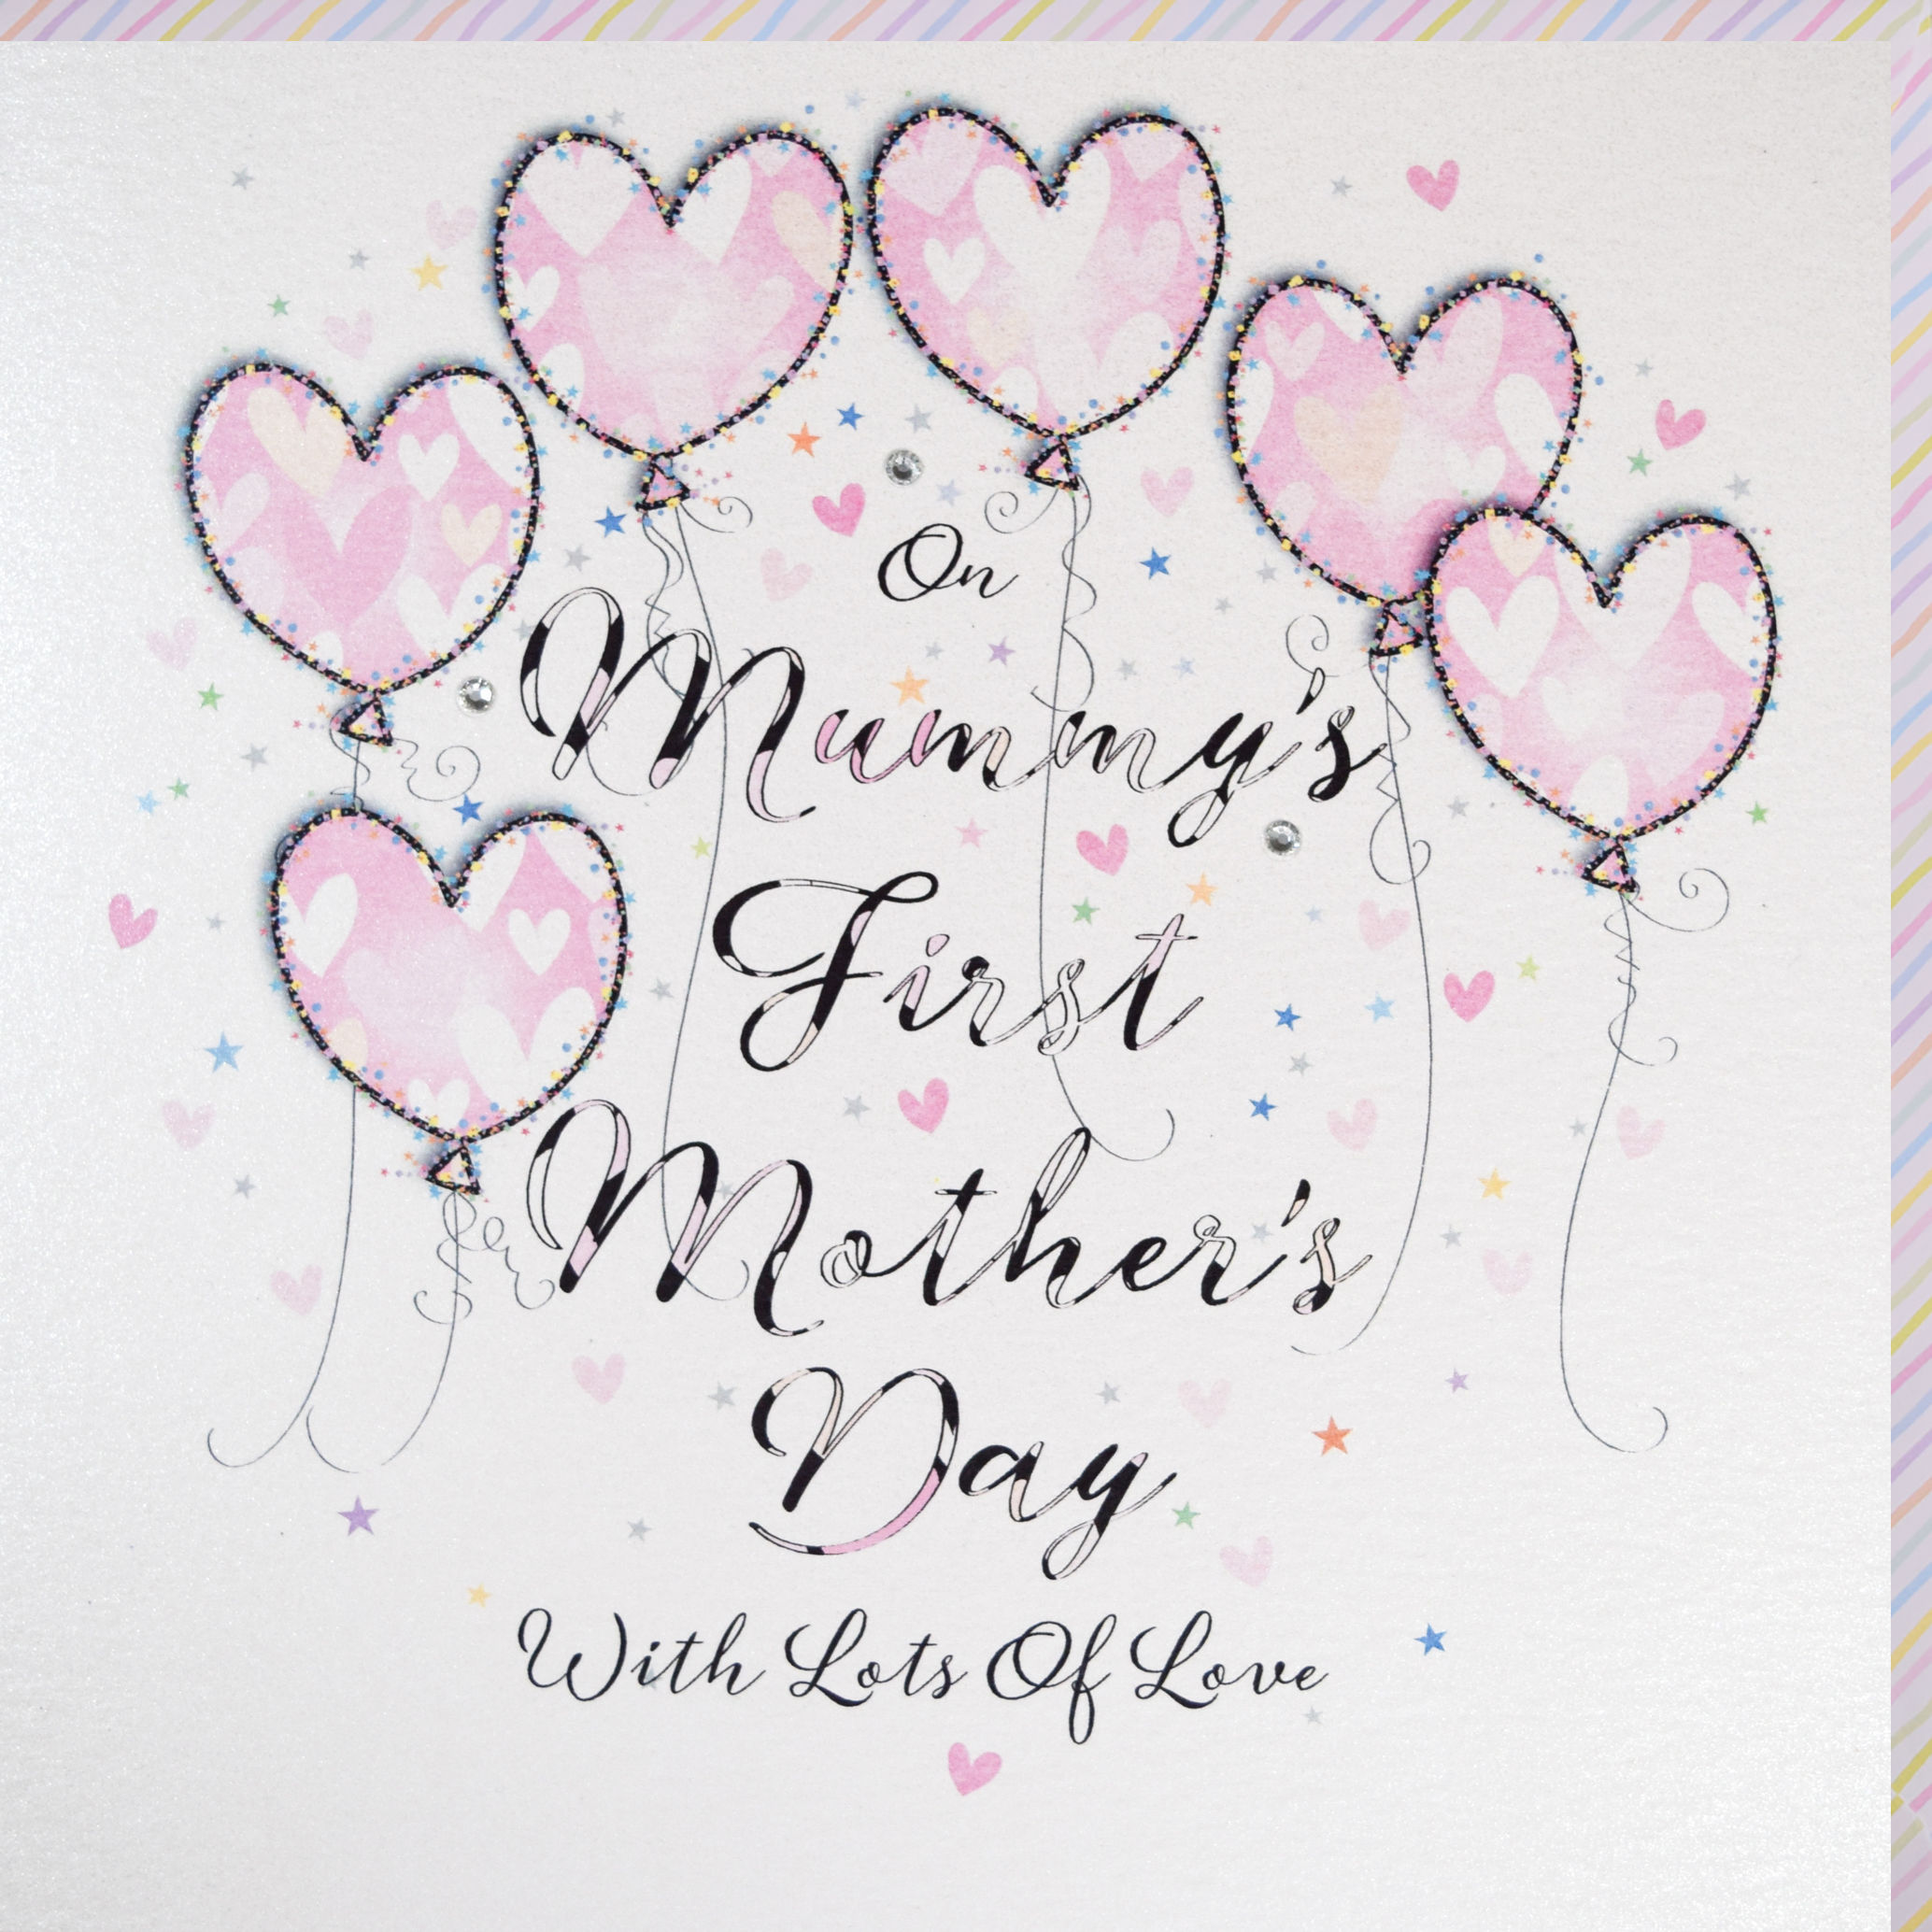 On
Mummy's
First
Mother's
Day
With Lots Of Love